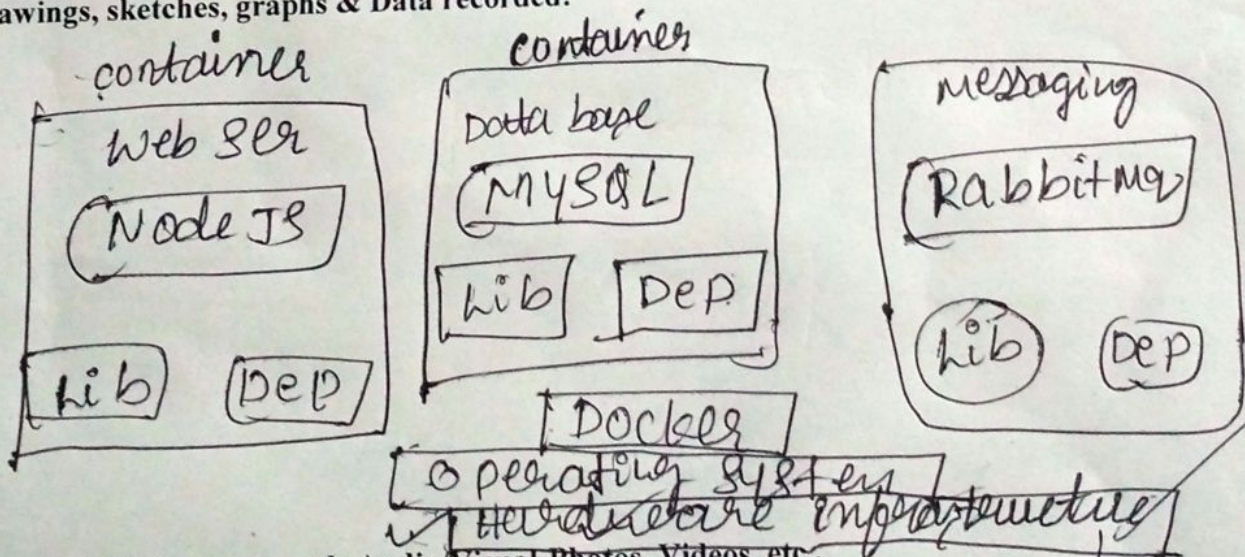 awings, sketches, graphs & Data recorded:
container
Web Ser
Node JS
Lib
Dep
container
Data base
MySQL
Lib
Dep
Messaging
RabbitMq
Lib
Dep
Docker
Operating System
Hardware infrastructure
Photos, Videos, etc